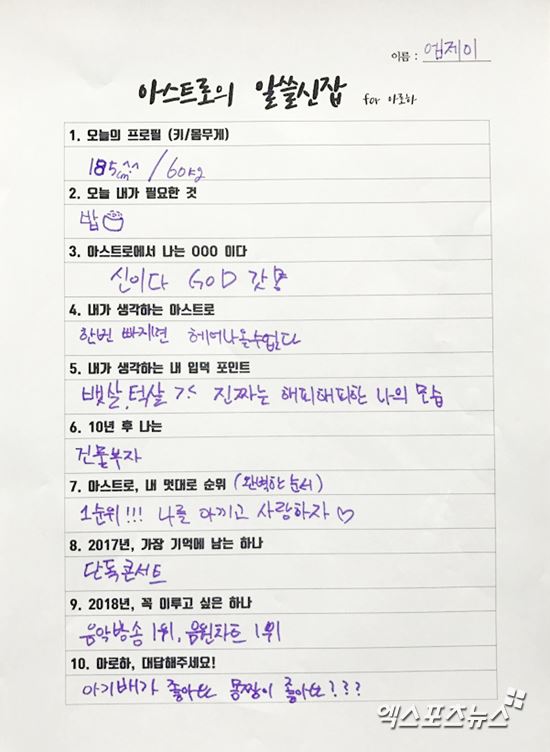 이름 : 엠제이
아스트로의 알쓸신잡 for 아로하
1. 오늘의 프로필 (키/몸무게)
185cm^^ / 60kg
2. 오늘 내가 필요한 것
밥
3. 아스트로에서 나는 OOO 이다
신이다 GOD 갓
4. 내가 생각하는 아스트로
한번 빠지면 헤어나올수없다
5. 내가 생각하는 내 입덕 포인트
뱃살, 턱살 진짜는 해피해피한 나의 모습
6. 10년 후 나는
건물부자
7. 아스트로, 내 멋대로 순위 (완벽한 순서)
1순위!!! 나를 아끼고 사랑하자 ♡
8. 2017년, 가장 기억에 남는 하나
단독콘서트
9. 2018년, 꼭 이루고 싶은 하나
음악방송 1위, 음원차트 1위
10. 아로하, 대답해주세요!
아기배가 좋아요 몸짱이 좋아요???
엑스포츠뉴스